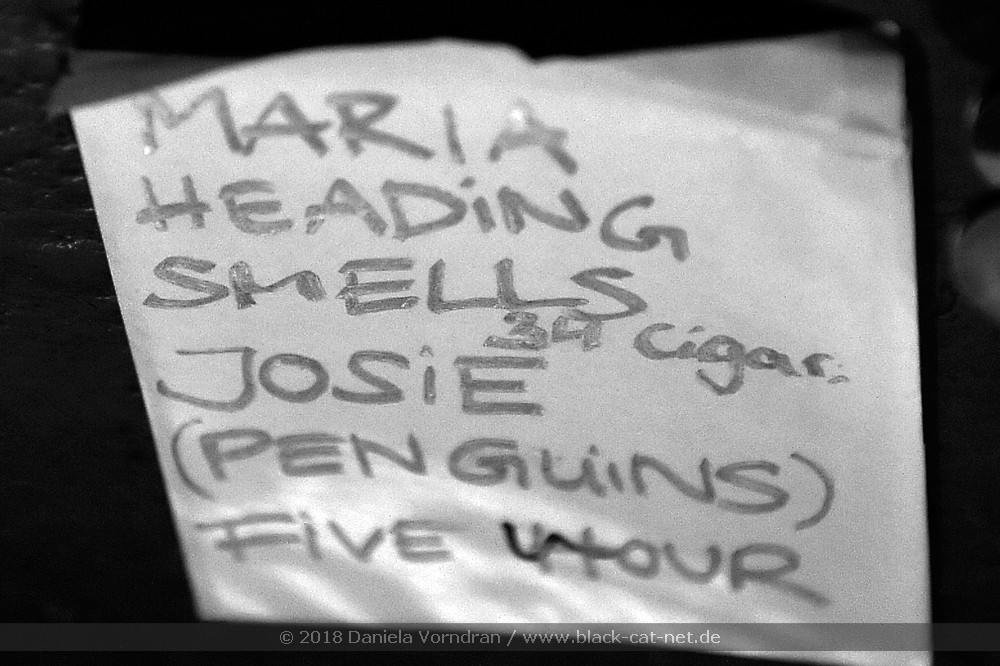 MARIA
HEADING
SMELLS
34 cigar.
JOSIE
(PENGUINS)
FIVE HOUR
© 2018 Daniela Vorndran / www.black-cat-net.de